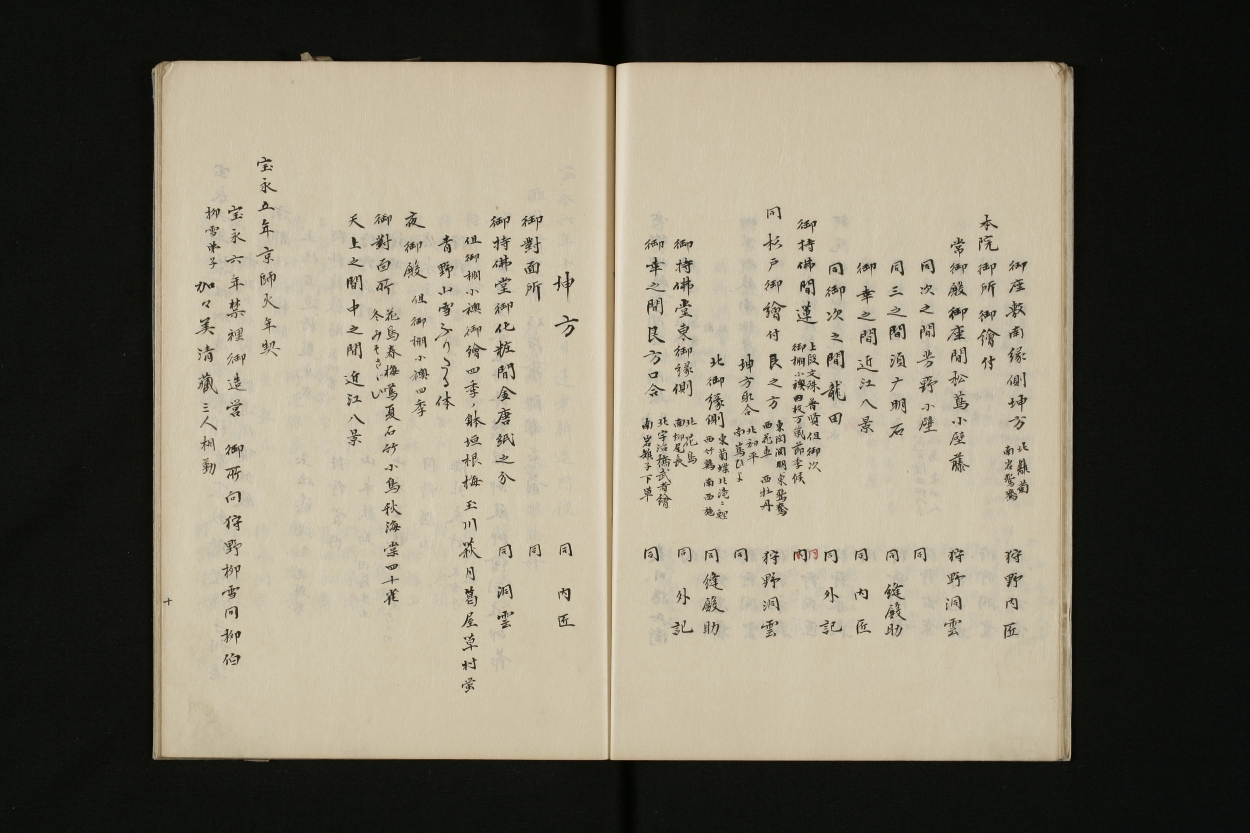 御座敷南縁側坤方 北籬菊 南岩鴛鴦 狩野内匠
本院御所御繪付
常御殿御座間松蔦小壁藤 狩野洞雲
同次之間芳野小壁 同
同三之間須广明石 同縫殿助
御幸之間近江八景 同内匠
同御次之間龍田 同外記
御持佛間蓮 上段文殊普賢但御次 御棚小襖四枚万歳節季候 同
同杉戸御繪付艮之方 東関関明東鴛鴦 西花車 西牡丹 狩野洞雲
坤方取合 北初平 南 同
北御縁側 東菊蝶北滝ニ鯉 西竹鶴南西施 同縫殿助
御持佛堂東御縁側 北花鳥 南柳尾長 同外記
御幸之間艮方口合 北宇治橋武者繪 南岩雉子下草 同
坤方 同内匠
御對面所 同
御持佛堂御化粧間金唐紙之分 同洞雲
但御棚小襖御繪四季ノ躰垣根梅玉川萩月葛屋草村蛍
青野山雪ふりたる体
夜御殿 但御棚小襖四季
御對面所 花鳥春梅鴬夏石竹小鳥秋海棠四十雀 冬みそさゝい
天上之間中之間近江八景
宝永五年京師火年契
宝永六年禁裡御造営 御所向狩野柳雪同柳伯
柳雪弟子 加々美清藏三人相勤
十